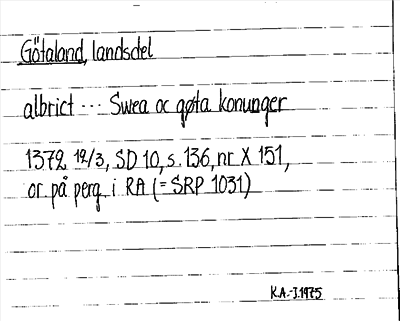 Götaland, landsdel
albrict ··· Swea oc gøta konunger
1372 12/3, SD 10, s. 136, nr X 151,
or. på perg. i RA (= SRP 1031)
K.A.-J. 1975